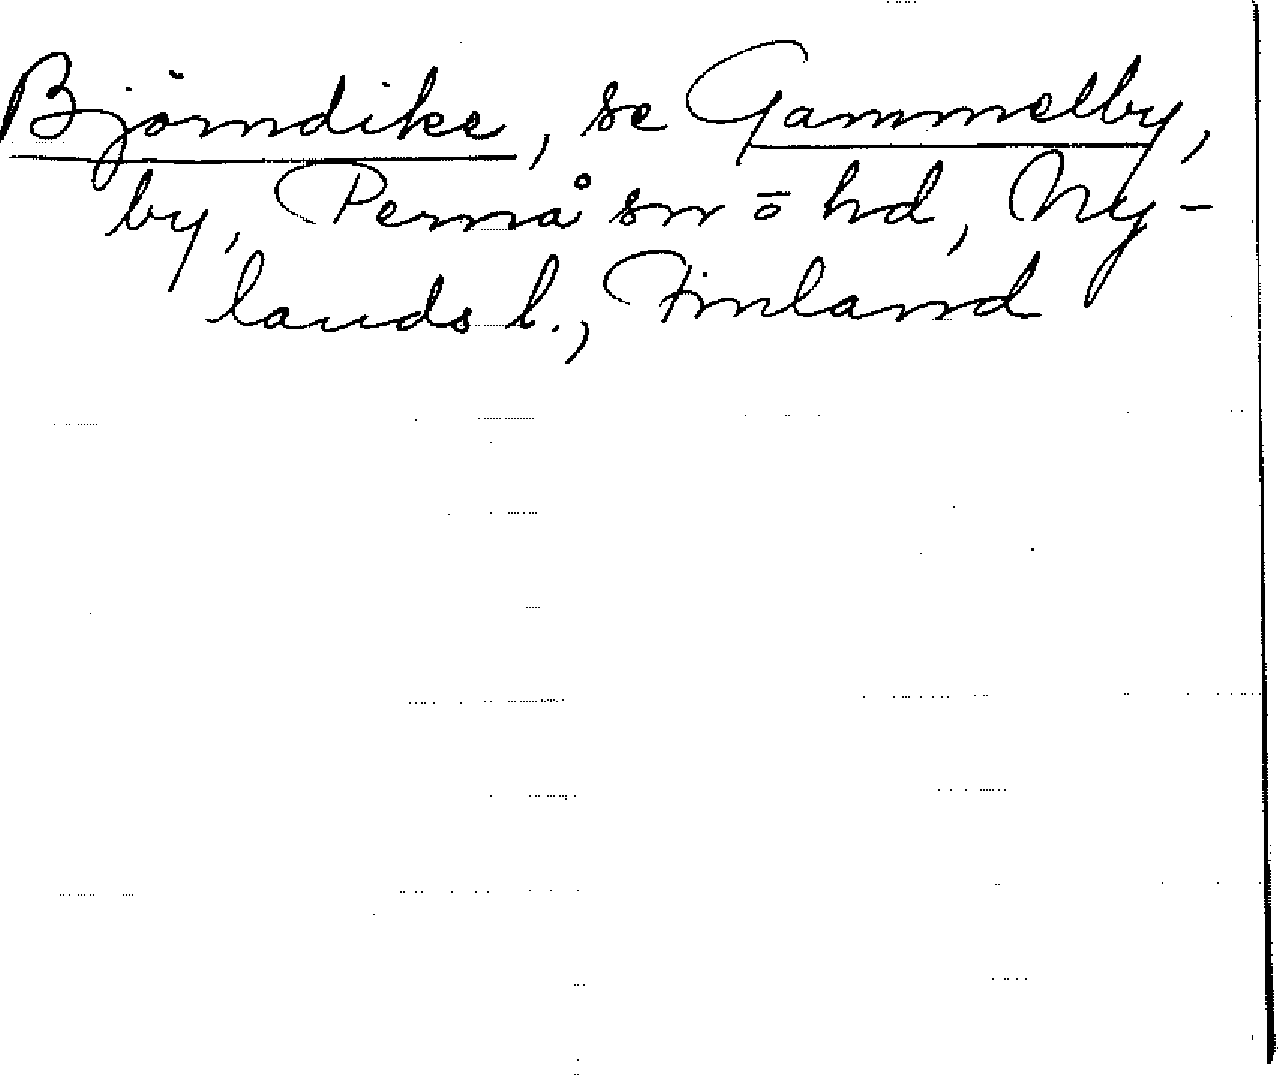 Björndike, se Gammelby,
by, Pernå sn o hd, Ny-
lands l., Finland